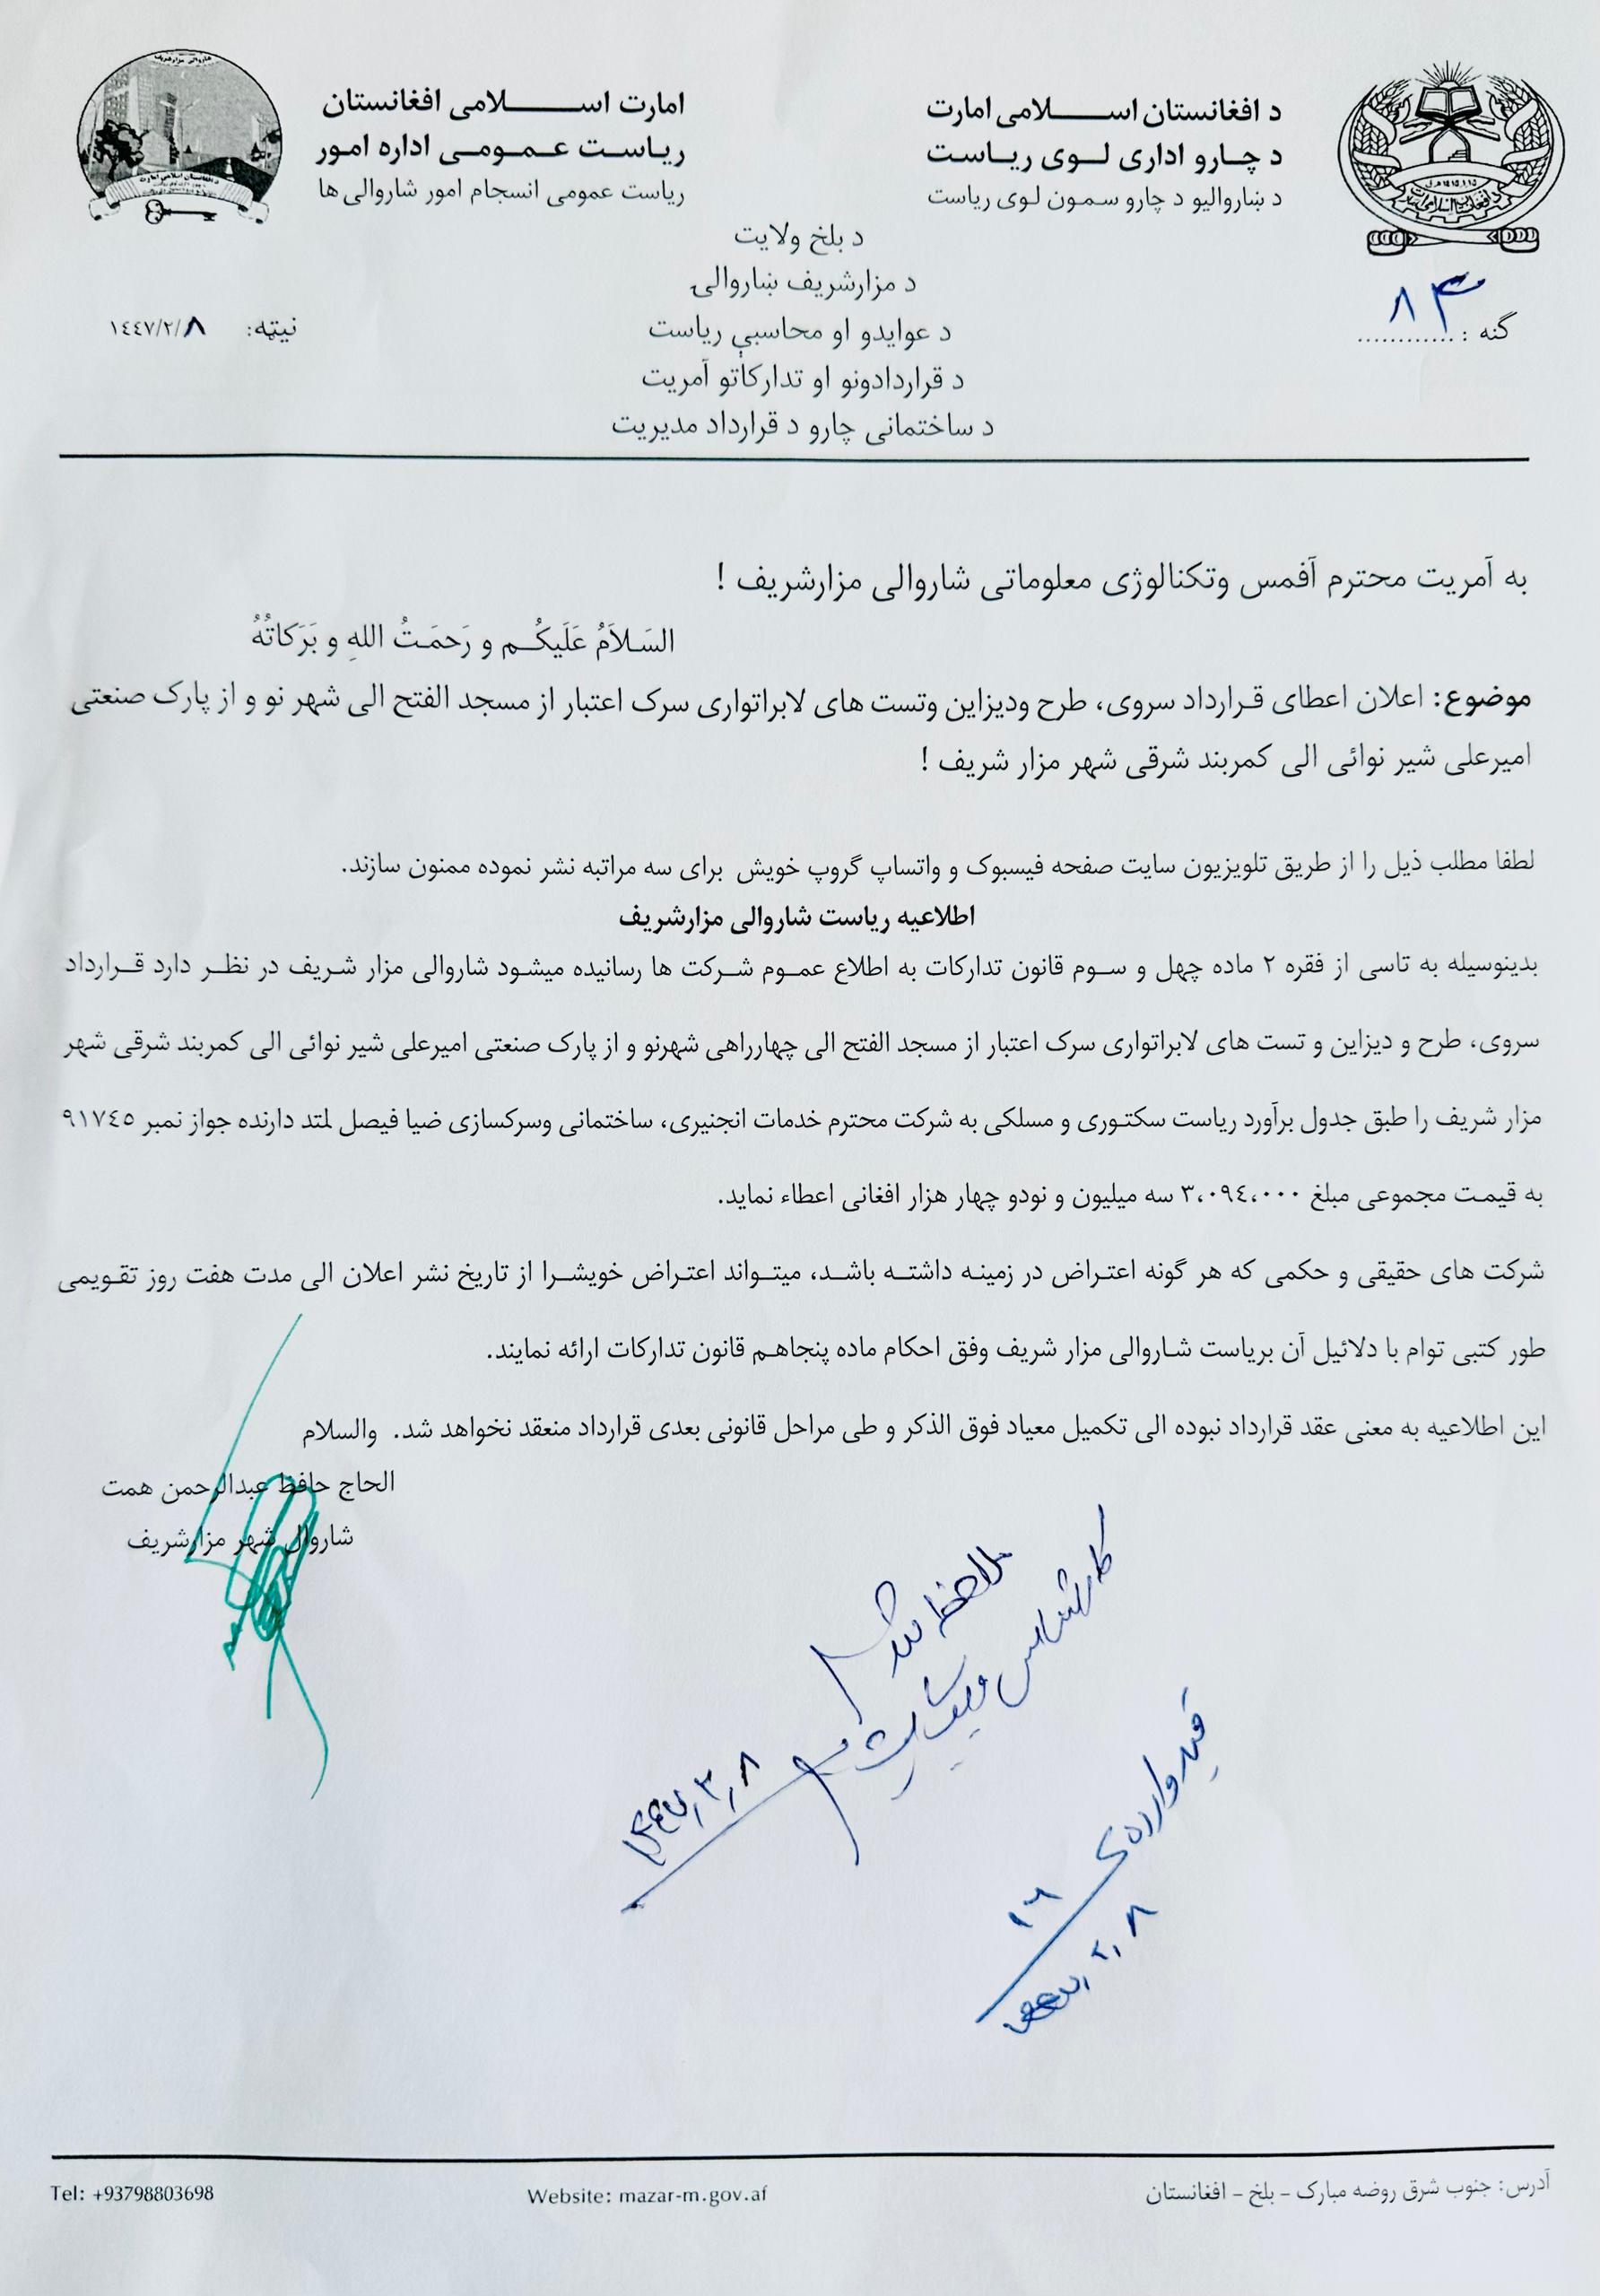 د افغانستان اســـــلامی امارت
د چـــارو اداری لـــوی ریـــاست
د ښاروالیو د چارو سمون لوی ریاست
امارت اســـــلامی افغانستان
ریـاسـت عـمـومـی اداره امور
ریاست عمومی انسجام امور شاروالی ها
د بلخ ولایت
د مزارشریف ښاروالۍ
د عوایدو او محاسبې ریاست
د قراردادونو او تدارکاتو آمریت
د ساختمانی چارو د قرارداد مدیریت
گنه : ............ ۸۴
نیټه: ١٤٤٧/٢/٨
به آمریت محترم آفمس وتکنالوژی معلوماتی شاروالی مزارشریف !
السَلاَمُ عَلَیکُـم و رَحمَـتُ اللهِ و بَرَکاتُهُ
موضوع: اعلان اعطای قـرارداد سروی، طرح ودیزاین وتست های لابراتواری سرک اعتبار از مسجد الفتح الی شهر نو و از پارک صنعتی
امیرعلی شیر نوائی الی کمربند شرقی شهر مزار شریف !
لطفا مطلب ذیل را از طریق تلویزیون سایت صفحه فیسبوک و واتساپ گروپ خویش برای سه مراتبه نشر نموده ممنون سازند.
اطلاعیه ریاست شاروالی مزارشریف
بدینوسیله به تاسی از فقره ٢ ماده چهل و سـوم قانون تدارکات به اطلاع عمـوم شـرکت ها رسانیده میشـود شاروالی مزار شـریف در نظـر دارد قـرارداد
سروی، طرح و دیزاین و تست های لابراتواری سرک اعتبار از مسجد الفتح الی چهارراهی شهرنو و از پارک صنعتی امیرعلی شیر نوائی الی کمربند شرقی شهر
مزار شریف را طبق جدول برآورد ریاست سکتـوری و مسلکی به شرکت محترم خدمات انجنیری، ساختمانی وسرکسازی ضیا فیصل لمتد دارنده جواز نمبر ٩١٧٤٥
به قیمـت مجموعی مبلغ ٣،٠٩٤،٠٠٠ سه میلیون و نودو چهار هزار افغانی اعطاء نماید.
شرکت های حقیقی و حکمی که هر گونه اعتـراض در زمینـه داشتـه باشـد، میتـواند اعتـراض خویشـرا از تاریخ نشر اعلان الی مدت هفت روز تقـویمی
طور کتبی توام با دلائیل آن بریاست شـاروالی مزار شریف وفق احکام ماده پنجاهـم قانون تدارکات ارائه نمایند.
این اطلاعیه به معنی عقد قرارداد نبوده الی تکمیل معیاد فوق الذکر و طی مراحل قانونی بعدی قرارداد منعقد نخواهد شد. والسلام
الحاج حافظ عبدالرحمن همت
شاروال شهر مزارشریف
ملاحظه شد
کارشناس
۱۴۴۷٫۲٫۸
قید وارده
۱۶
۱۴۴۷٫۲٫۸
آدرس: جنوب شرق روضه مبارک – بلخ – افغانستان
Website: mazar-m.gov.af
Tel: +93798803698